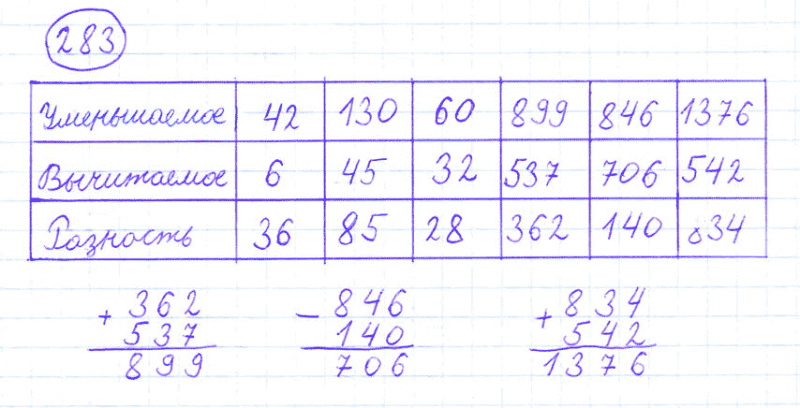 283
Уменьшаемое 42 130 60 899 846 1376
Вычитаемое 6 45 32 537 706 542
Разность 36 85 28 362 140 834
+ 362 − 846 + 834
537 140 542
899 706 1376